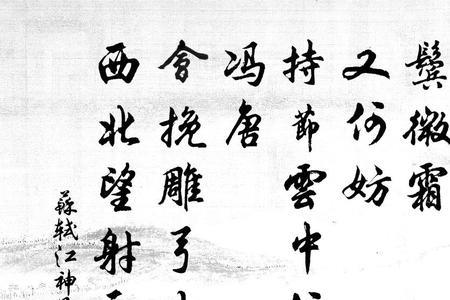 鬓微霜
又何妨
持節雲中
冯唐
會挽雕弓
西北望射
蘇軾江神